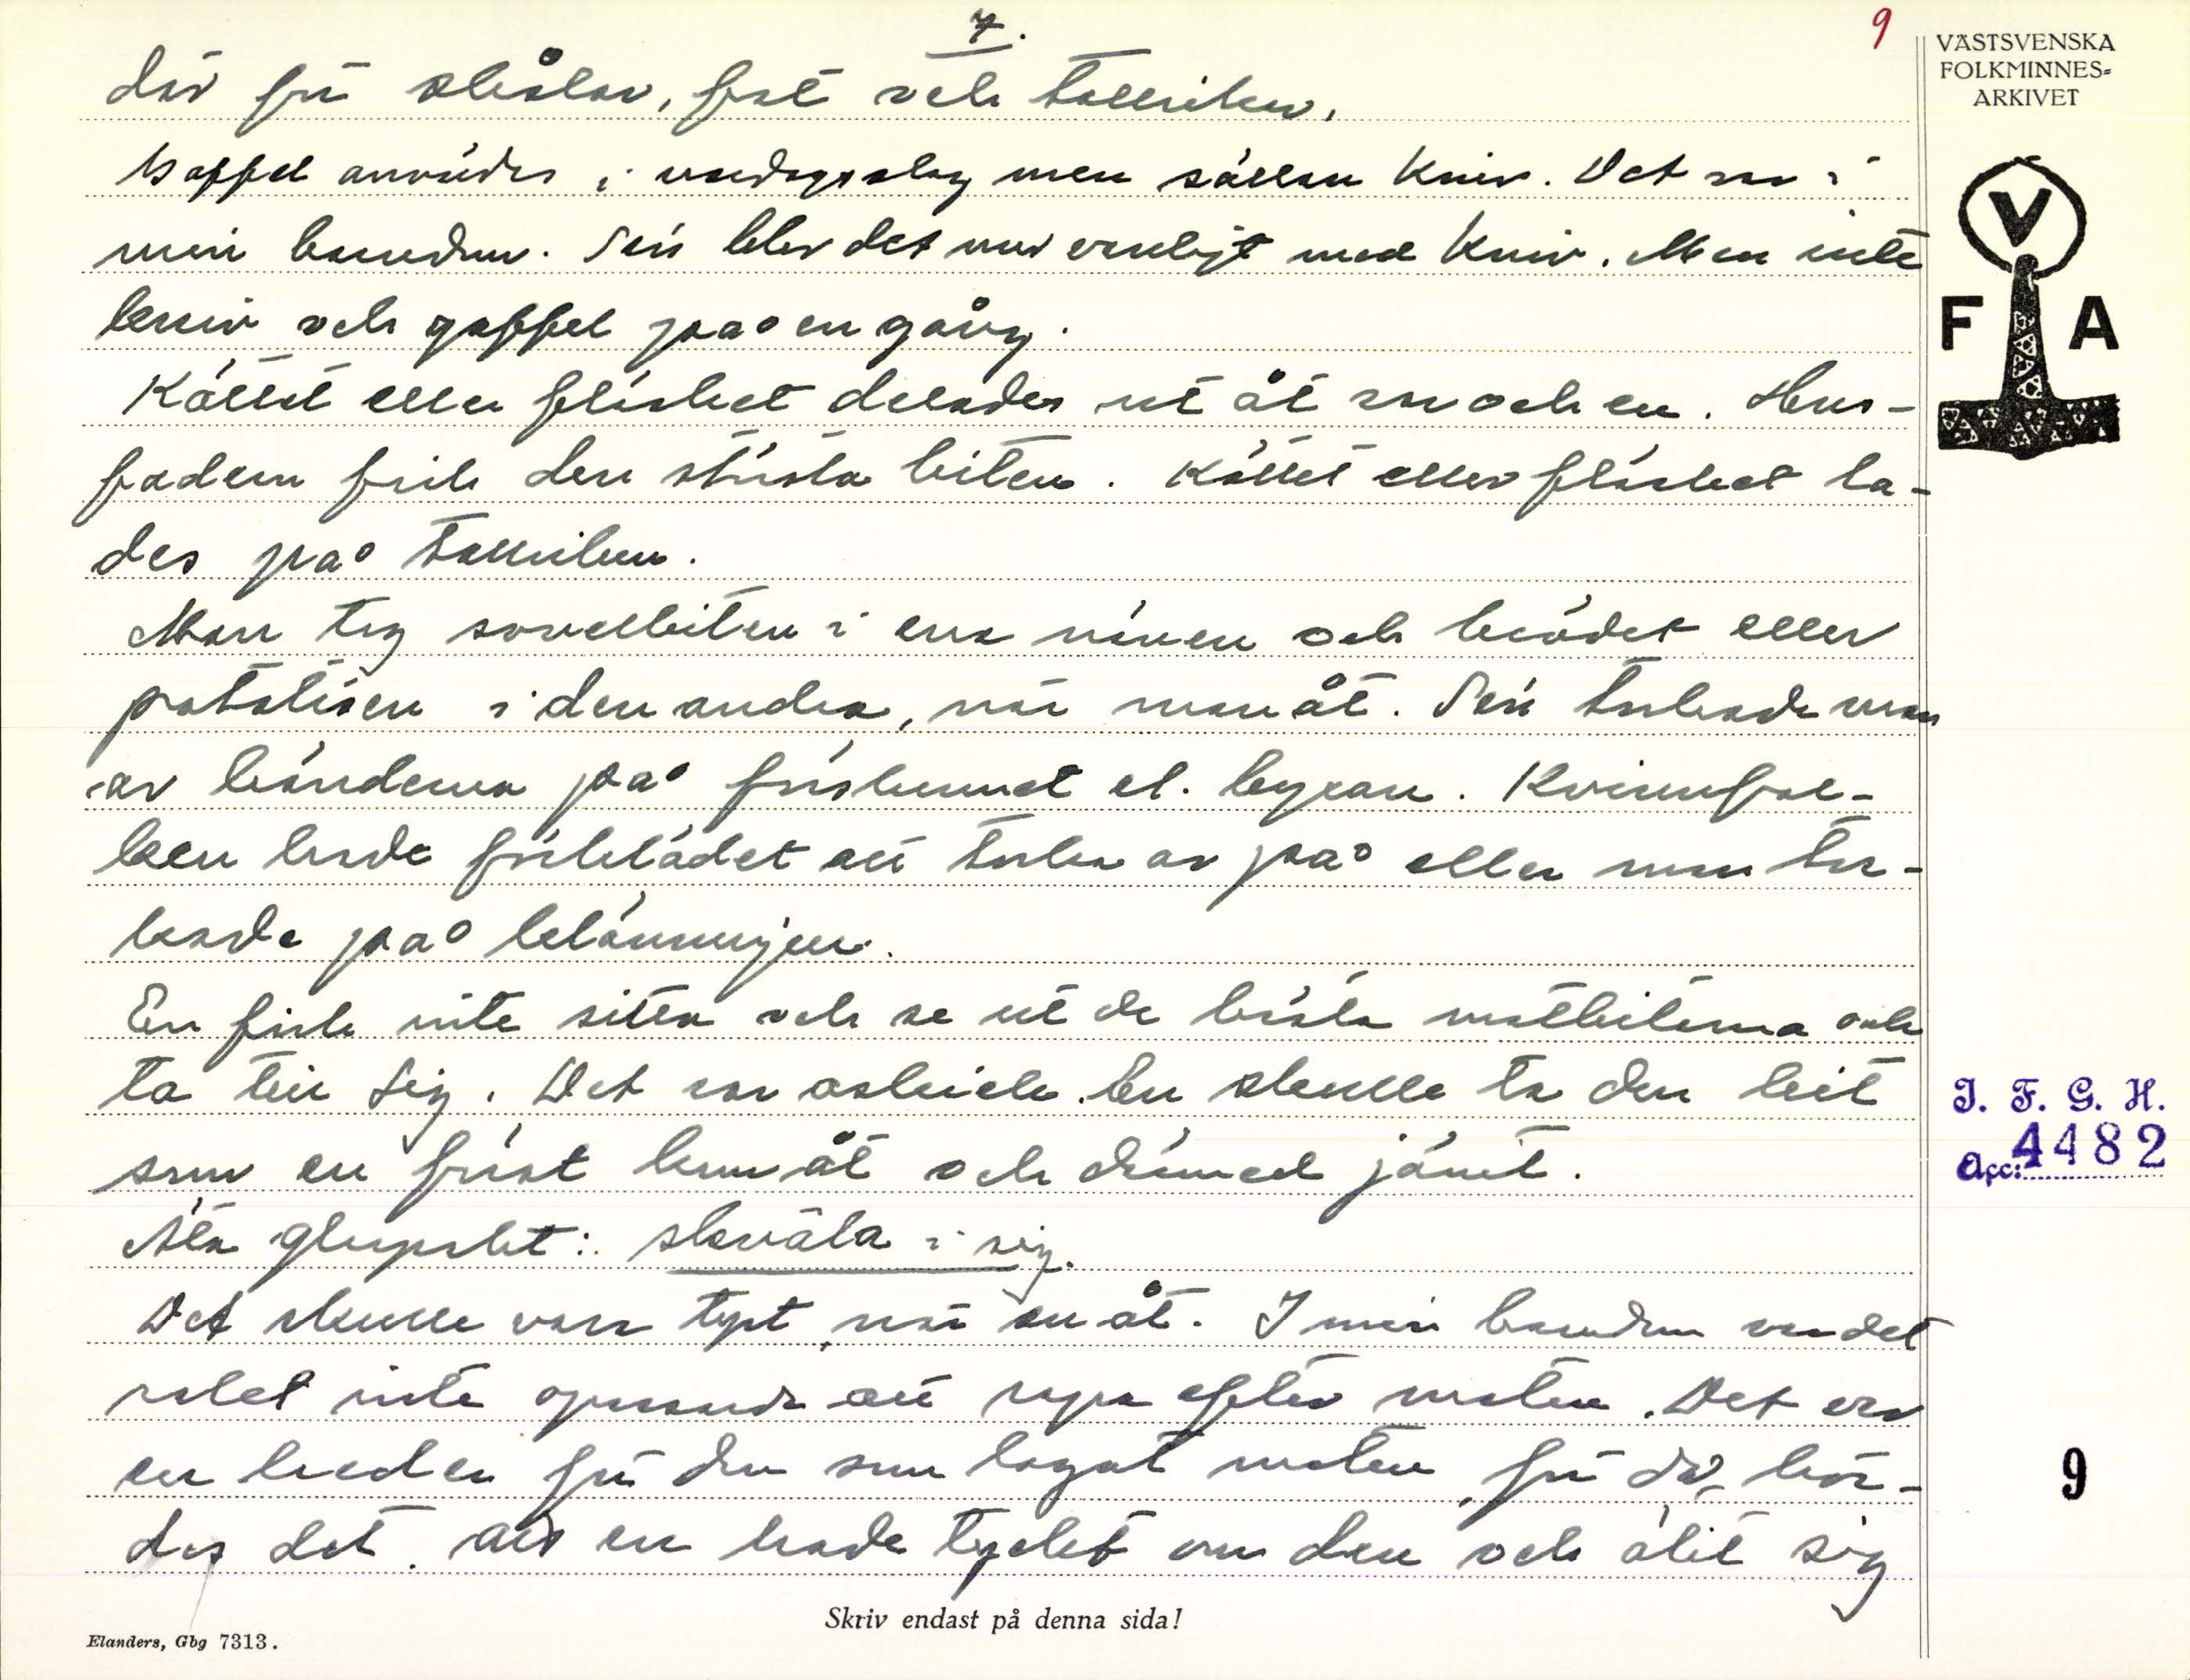 7.
9
där för skålar, fat och tallrikar.
Gaffel användes i vardagslag men sällan kniv. Det var i
min barndom. Sen blev det mer vanligt med kniv. Men inte
kniv och gaffel på en gång.
Köttet eller fläsket delades ut åt var och en. Hus-
fadern fick den största biten. Köttet eller fläsket la-
des på tallriken.
Man tog sovelbiten i ena näven och brödet eller
potatisen i den andra, när man åt. Sen torkade man
av händerna på förskinnet el. byxan. Kvinnfol-
ken hade förklädet att torka av på eller man tor-
kade på klänningen.
En fick inte sitta och se ut de bästa matbitarna och
ta till sig. Det var oskick. En skulle ta den bit
som en först kom åt och därmed jämt.
Äta glupskt: skväla i sig.
Det skulle vara tyst, när en åt. I min barndom var det
rakt inte opassande att rapa efter maten. Det var
en heder för den som lagat maten, för då hör-
des det, att en hade tyckt om den och ätit sig
VÄSTSVENSKA
FOLKMINNES=
ARKIVET
V
F A
I. F. G. H.
Acc: 4482
9
Skriv endast på denna sida!
Elanders, Gbg 7313.